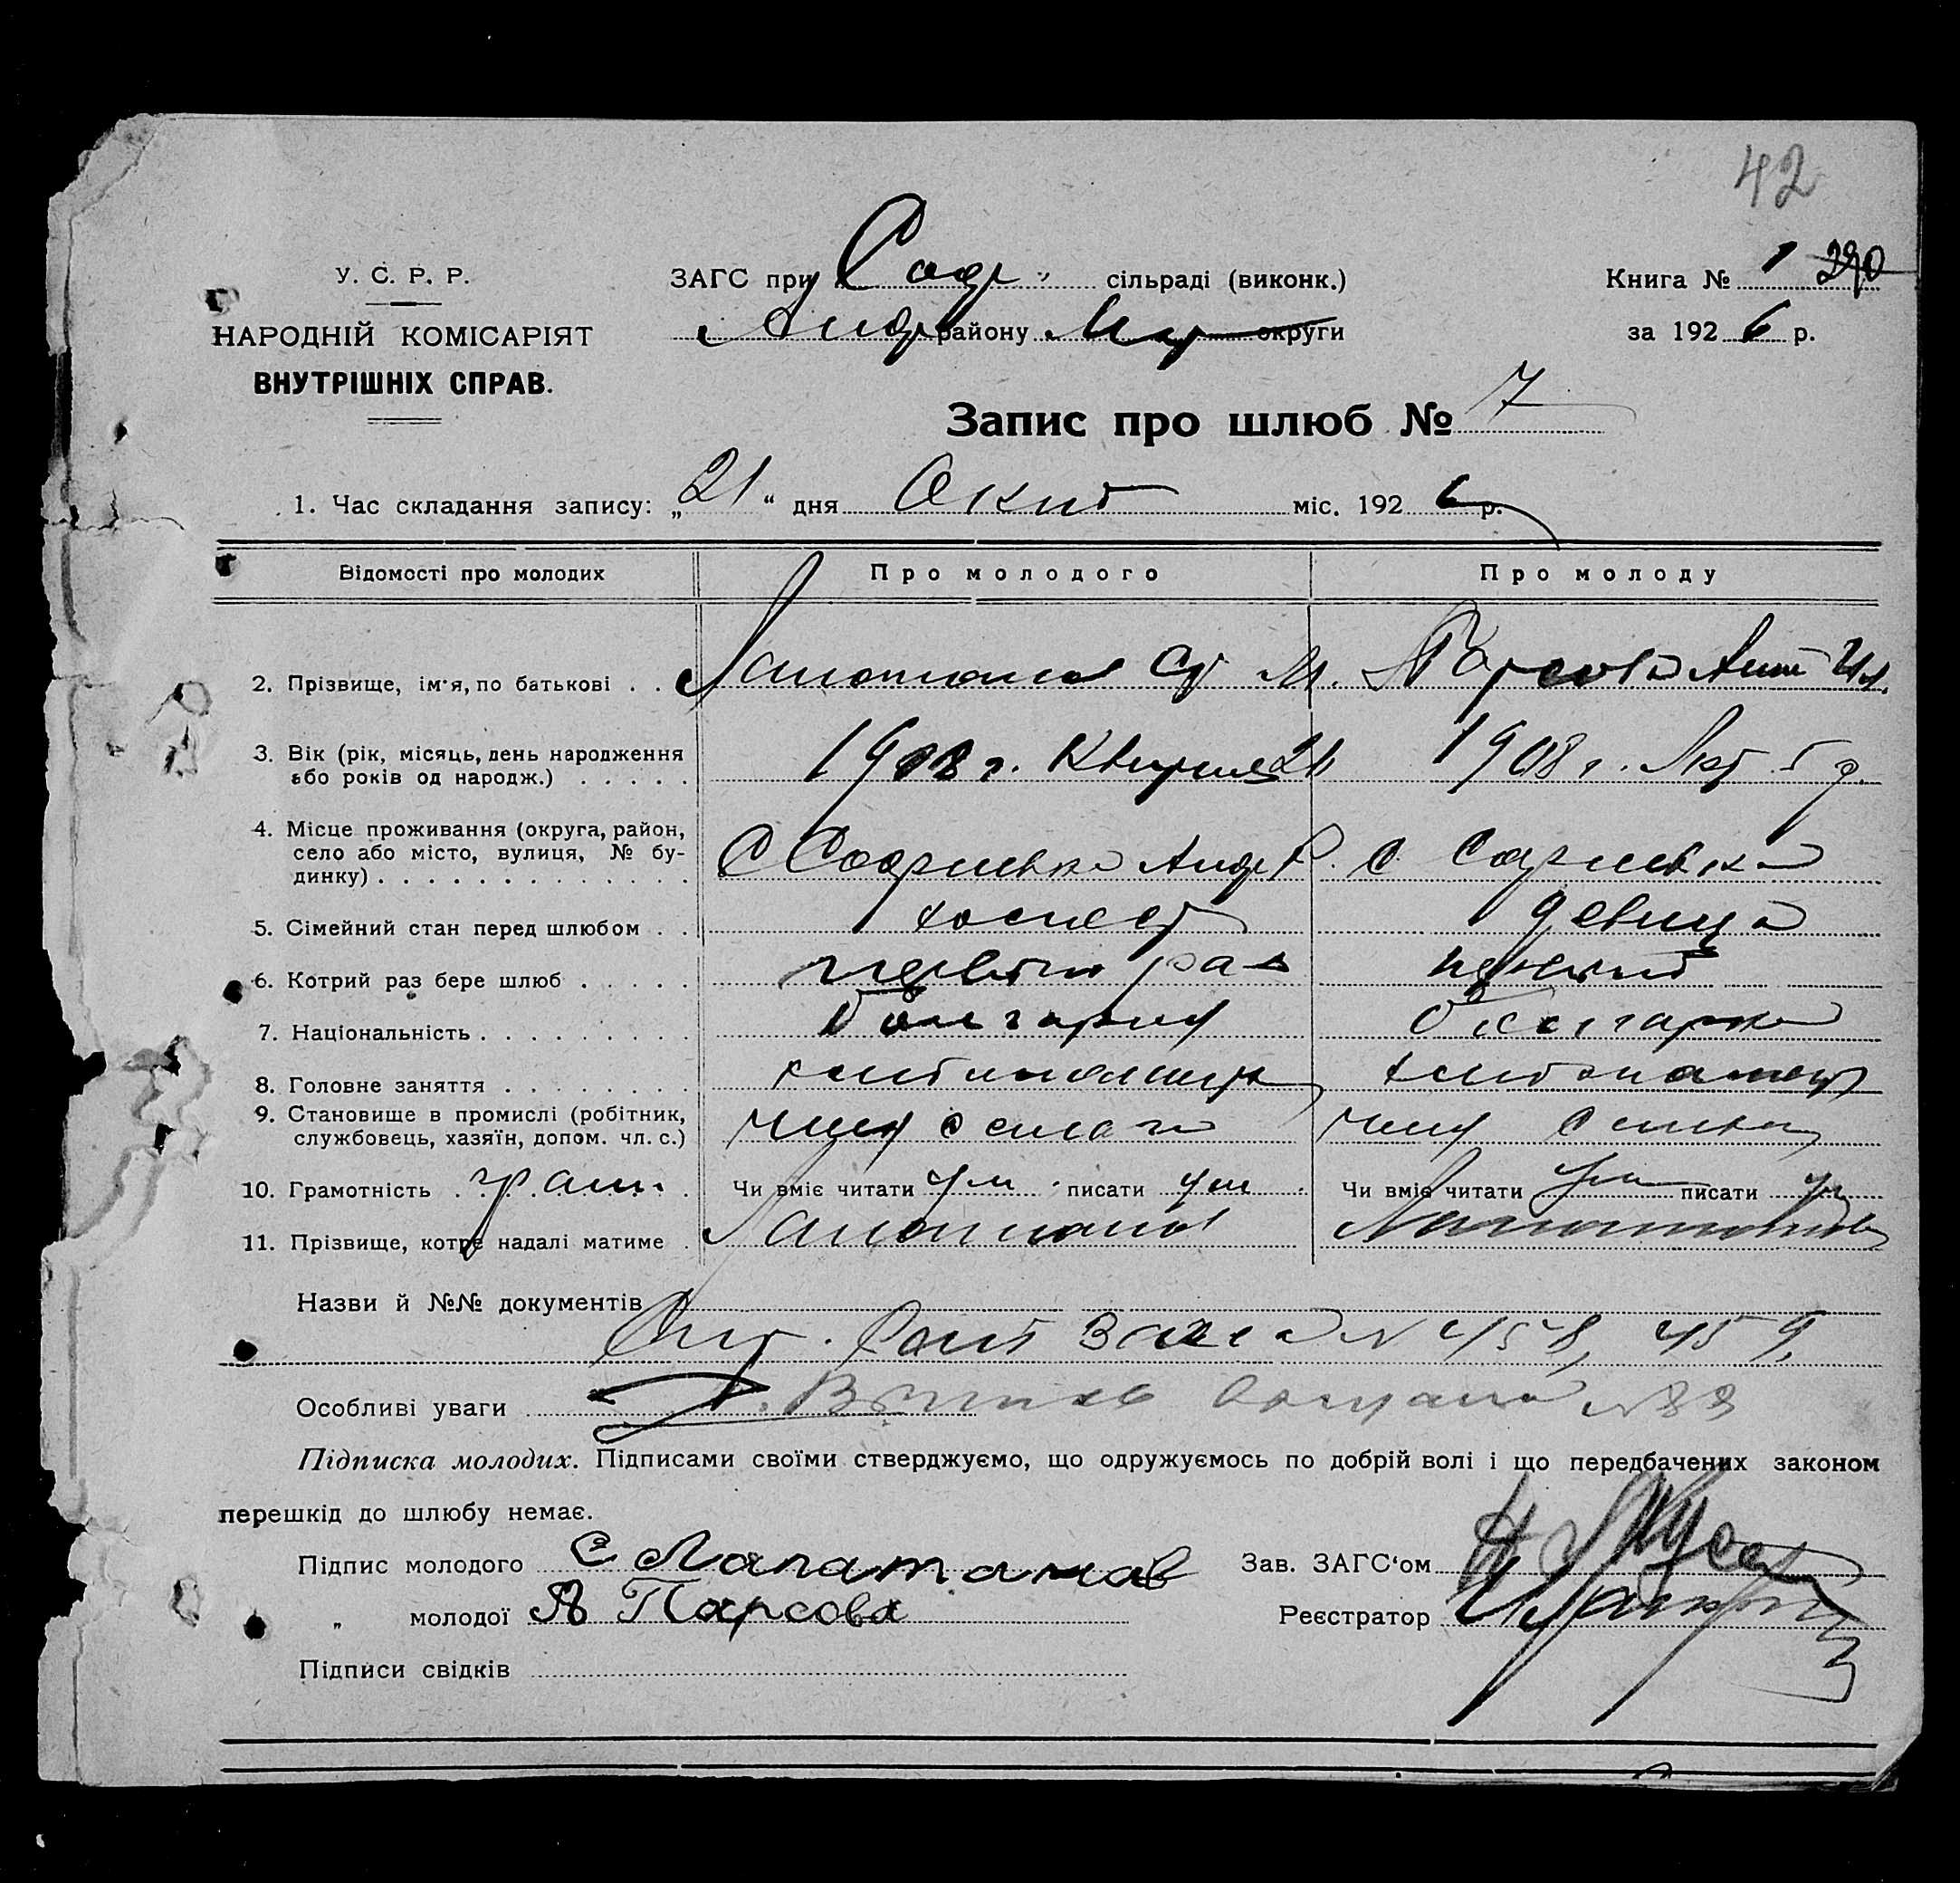 42
У. С. Р. Р.
НАРОДНІЙ КОМІСАРІЯТ
ВНУТРІШНІХ СПРАВ.
ЗАГС при Софр сільраді (виконк.)
Андр району округи
Книга № 1 290
за 1926 р.
Запис про шлюб № 7
1. Час складання запису: „21“ дня Окт міс. 1926 р.
Відомості про молодих Про молодого Про молоду
2. Прізвище, ім'я, по батькові . . Лапатанов М. Парсова Ил.
3. Вік (рік, місяць, день народження
або років од народж.) . . . . . 1908 г. 21 1908 г.
4. Місце проживання (округа, район,
село або місто, вулиця, № бу-
динку) . . . . . . . . . . . . . С Софиевка Анд. Р. с Софиевка
5. Сімейний стан перед шлюбом . . холост девица
6. Котрий раз бере шлюб . . . . . первый раз первый
7. Національність . . . . . . . . . болгарин болгарка
8. Головне заняття . . . . . . . . хлебопашец хлебопашец
9. Становище в промислі (робітник,
службовець, хазяїн, допом. чл. с.) член член
10. Грамотність . грам. Чи вміє читати ум писати ум Чи вміє читати ум писати ум
11. Прізвище, котре надалі матиме . Лапатанов Лапатанова
Назви й №№ документів
№ 458, 459,
Особливі уваги
Підписка молодих. Підписами своїми стверджуємо, що одружуємось по добрій волі і що передбачених законом
перешкід до шлюбу немає.
Підпис молодого С Лапатанов Зав. ЗАГС‘ом
„ молодої А Парсова Реєстратор
Підписи свідків